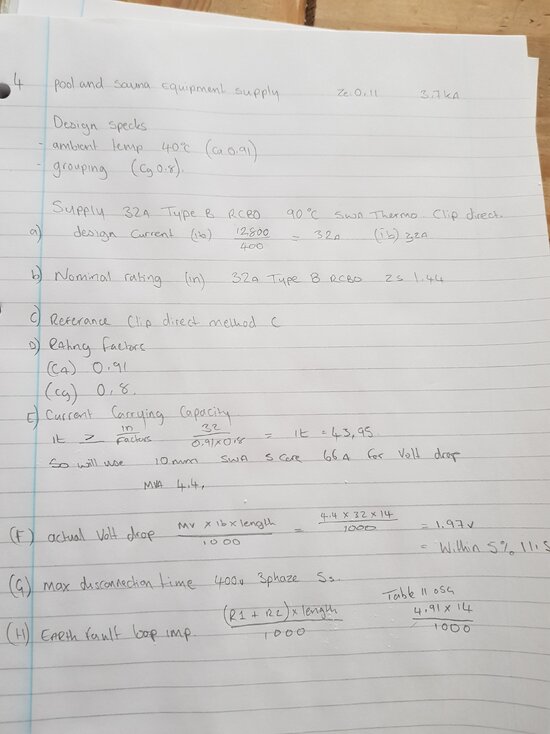 4 pool and sauna Equipment supply Ze: 0.11 3.7kA
Design specks
- ambient temp 40°c (Ca 0.91)
- grouping (Cg 0.8).
Supply 32A Type B RCBO 90°C SWA Thermo Clip direct.
a) design current (ib) 12800/400 = 32A (ib) 32A
b) Nominal rating (in) 32A Type B RCBO 2s 1.44
C) Referance Clip direct method C
D) Rating factors
(CA) 0.91
(Cg) 0.8.
E) Current Carrying Capacity
It ≥ in/factors 32/0.91x0.8 = It = 43,95.
So will use 10mm SWA 5 core 66A for Volt drop
MVA 4.4.
(F) actual Volt drop MV x ib x length/1000 = 4.4 x 32 x 14/1000 = 1.97v
= Within 5% 11.5
(G) max disconnection time 400v 3phaze 5s.
Table 11 OSG
(H) EARTH fault loop imp. (R1 + R2) x length/1000 4.91 x 14/1000